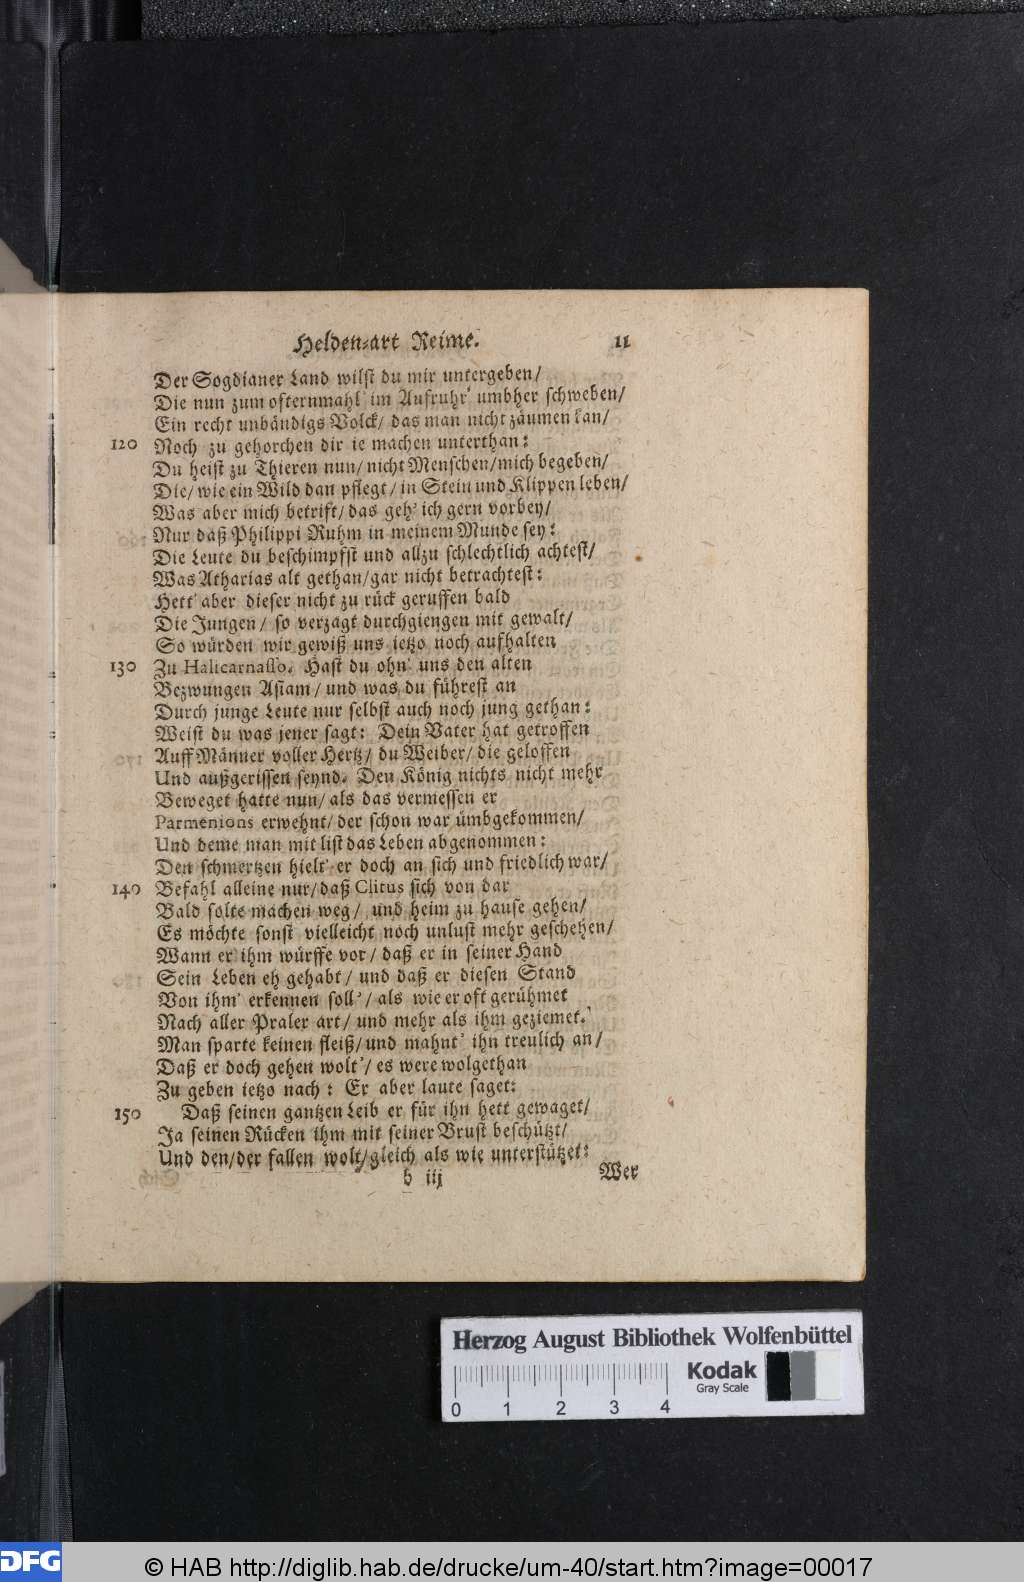 Helden-art Reime. 11
Der Sogdianer Land wilst du mir untergeben/
Die nun zum ofternmahl' im Aufruhr' umbher schweben/
Ein recht unbändigs Volck/ das man nicht zäumen kan/
120 Noch zu gehorchen dir ie machen unterthan:
Du heist zu Thieren nun/ nicht Menschen/ mich begeben/
Die/ wie ein Wild dan pflegt/ in Stein und Klippen leben/
Was aber mich betrift/ das geh' ich gern vorbey/
Nur daß Philippi Ruhm in meinem Munde sey:
Die Leute du beschimpfst und allzu schlechtlich achtest/
Was Atharias alt gethan/ gar nicht betrachtest:
Hett' aber dieser nicht zu rück geruffen bald
Die Jungen/ so verzagt durchgiengen mit gewalt/
So würden wir gewiß uns ietzo noch aufhalten
130 Zu Halicarnasso. Hast du ohn' uns den alten
Bezwungen Asiam/ und was du führest an
Durch junge Leute nur selbst auch noch jung gethan:
Weist du was jener sagt: Dein Vater hat getroffen
Auff Männer voller Hertz/ du Weiber/ die geloffen
Und außgerissen seynd. Den König nichts nicht mehr
Beweget hatte nun/ als das vermessen er
Parmenions erwehnt/ der schon war ümbgekommen/
Und deme man mit list das Leben abgenommen:
Den schmertzen hielt' er doch an sich und friedlich war/
140 Befahl alleine nur/ daß Clitus sich von dar
Bald solte machen weg/ und heim zu hause gehen/
Es möchte sonst vielleicht noch unlust mehr geschehen/
Wann er ihm würffe vor/ daß er in seiner Hand
Sein Leben eh gehabt/ und daß er diesen Stand
Von ihm' erkennen soll'/ als wie er oft gerühmet
Nach aller Praler art/ und mehr als ihm geziemet.
Man sparte keinen fleiß/ und mahnt' ihn treulich an/
Daß er doch gehen wolt'/ es were wolgethan
Zu geben ietzo nach: Er aber laute saget:
150 Daß seinen gantzen Leib er für ihn hett gewaget/
Ja seinen Rücken ihm mit seiner Brust beschützt/
Und den/ der fallen wolt/ gleich als wie unterstützet:
b iij Wer
Herzog August Bibliothek Wolfenbüttel
Kodak
Gray Scale
0 1 2 3 4
DFG © HAB http://diglib.hab.de/drucke/um-40/start.htm?image=00017